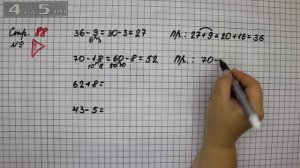 4.5
Стр. 88
№
36-9=30-3=27
6 3
Пр.: 27+9=20+16=36
70-18=60-8=52
10 8 50 10
Пр.: 70-
62+8=
43-5=